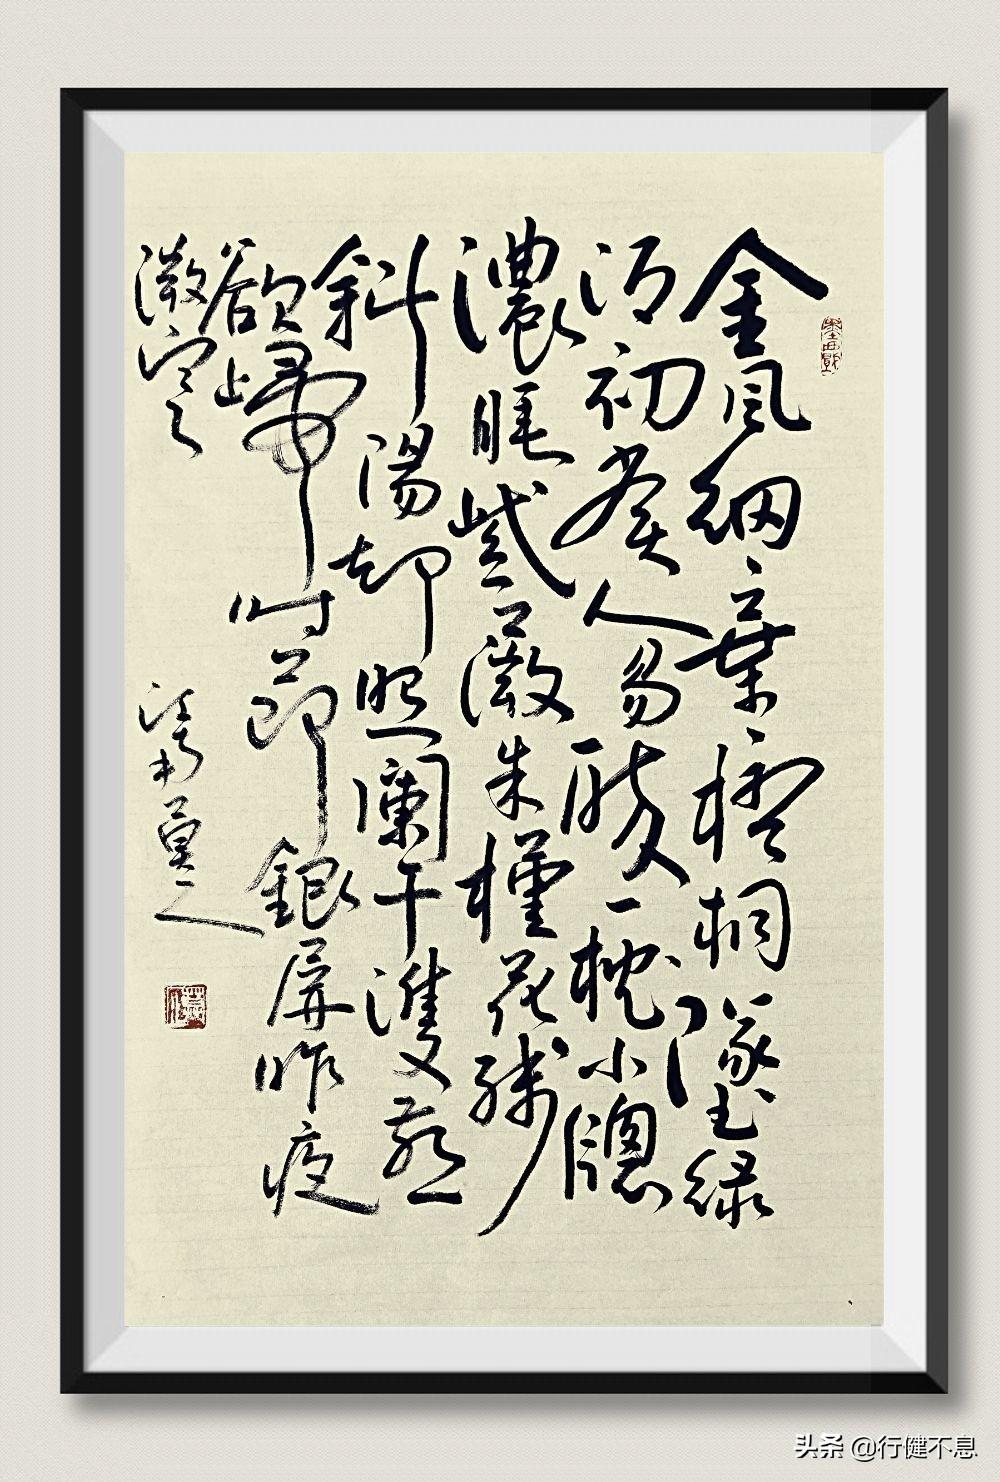 金風細〻葉〻梧桐墜綠
酒初嘗人易醉一枕小牕
濃睡紫薇朱槿花殘
斜陽却照闌干雙燕
欲歸時節銀屏昨夜
微寒
头条 @行健不息